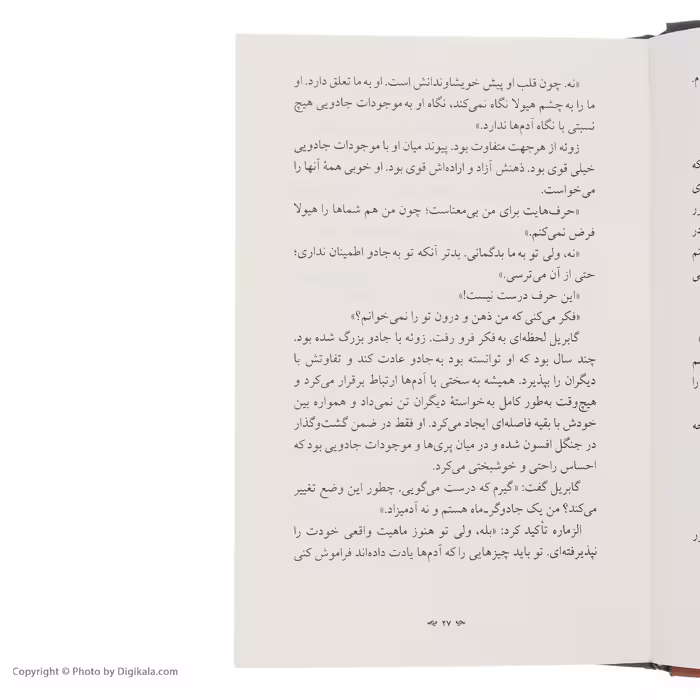 «نه. چون قلب او پیش خویشاوندانش است. او به ما تعلق دارد. او
ما را به چشم هیولا نگاه نمی‌کند، نگاه او به موجودات جادویی هیچ
نسبتی با نگاه آدم‌ها ندارد.»
زوئه از هرجهت متفاوت بود. پیوند میان او با موجودات جادویی
خیلی قوی بود. ذهنش آزاد و اراده‌اش قوی بود. او خوبی همهٔ آنها را
می‌خواست.
«حرف‌هایت برای من بی‌معناست؛ چون من هم شماها را هیولا
فرض نمی‌کنم.»
«نه، ولی تو به ما بدگمانی. بدتر آنکه تو به جادو اطمینان نداری؛
حتی از آن می‌ترسی.»
«این حرف درست نیست!»
«فکر می‌کنی که من ذهن و درون تو را نمی‌خوانم؟»
گابریل لحظه‌ای به فکر فرو رفت. زوئه با جادو بزرگ شده بود.
چند سال بود که او توانسته بود به جادو عادت کند و تفاوتش با
دیگران را بپذیرد. همیشه به سختی با آدم‌ها ارتباط برقرار می‌کرد و
هیچ‌وقت به‌طور کامل به خواستهٔ دیگران تن نمی‌داد و همواره بین
خودش با بقیه فاصله‌ای ایجاد می‌کرد. او فقط در ضمن گشت‌وگذار
در جنگل افسون شده و در میان پری‌ها و موجودات جادویی بود که
احساس راحتی و خوشبختی می‌کرد.
گابریل گفت: «گیرم که درست می‌گویی. چطور این وضع تغییر
می‌کند؟ من یک جادوگر-ماه هستم و نه آدمیزاد.»
الزماره تأکید کرد: «بله، ولی تو هنوز ماهیت واقعی خودت را
نپذیرفته‌ای. تو باید چیزهایی را که آدم‌ها یادت داده‌اند فراموش کنی
۲۷
Copyright © Photo by Digikala.com